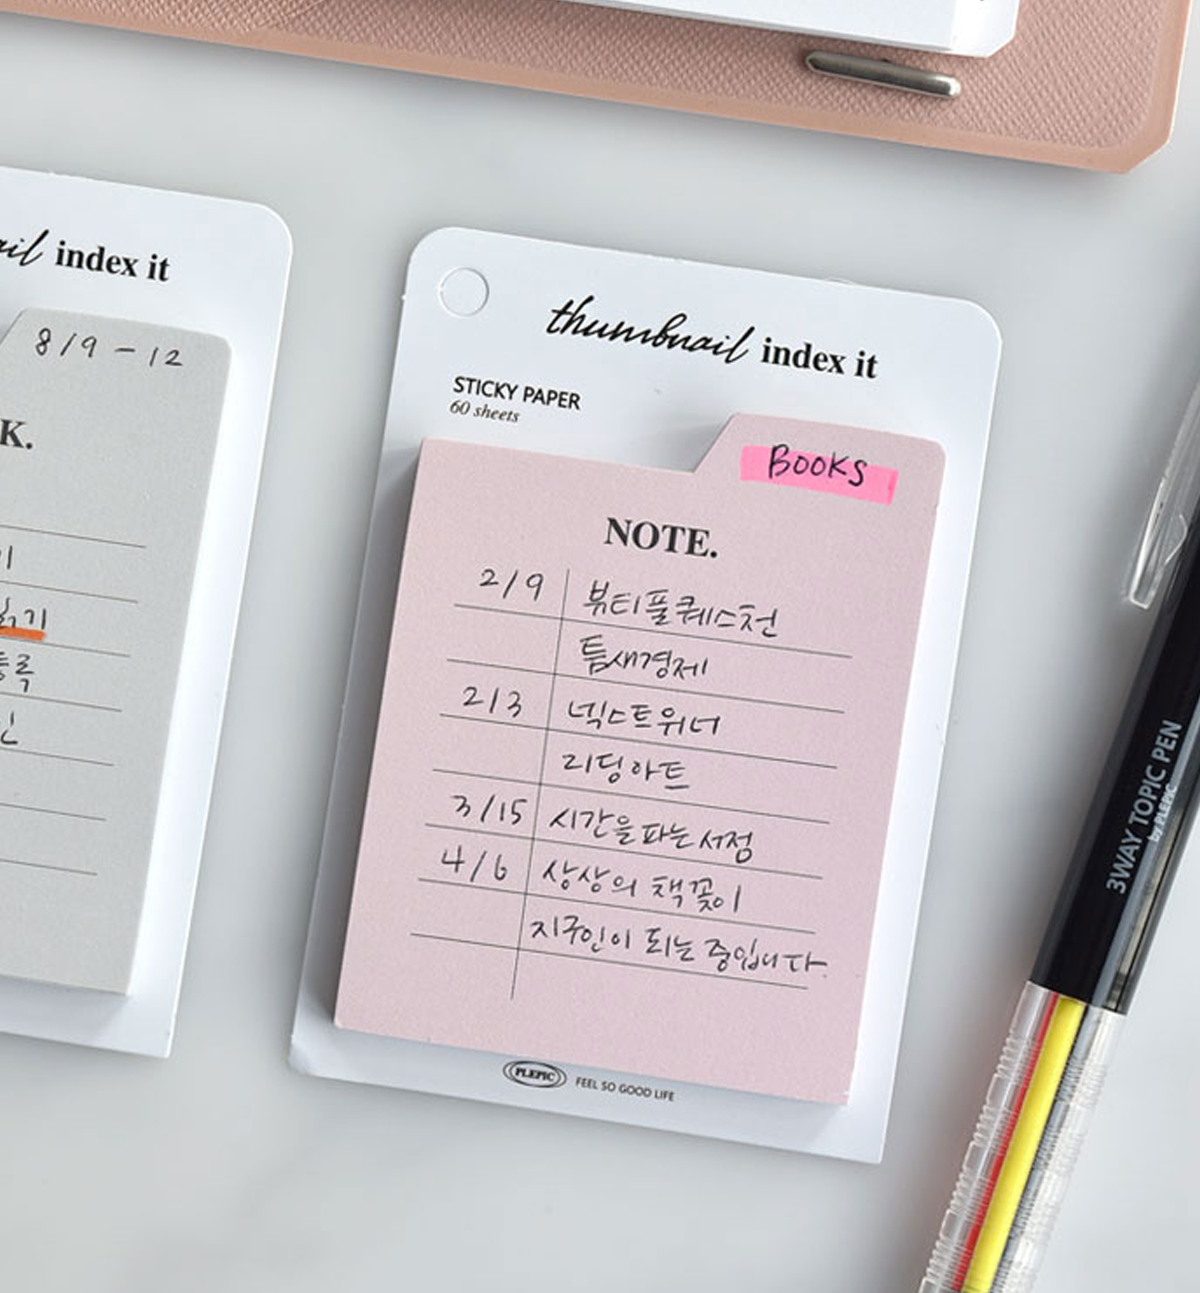 index it
8/9 - 12
K.
thumbnail index it
STICKY PAPER
60 sheets
BOOKS
NOTE.
2/9 뷰티풀퀘스천
틈새경제
2/3 넥스트위너
리딩아트
3/15 시간을파는서점
4/6 상상의 책꽂이
지구인이 되는 중입니다.
PLEPIC FEEL SO GOOD LIFE
3WAY TOPIC PEN
by PLEPIC